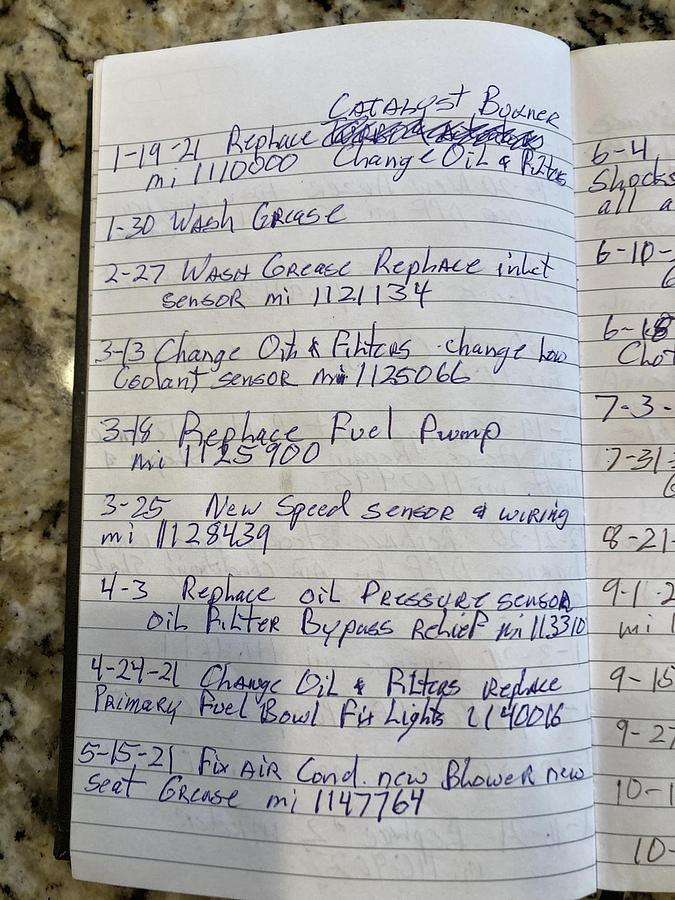 Catalyst Burner
1-19-21 Replace
mi 1110000 Change Oil & Filters
1-30 Wash Grease
2-27 Wash Grease Replace inlet
sensor mi 1121134
3-13 Change Oil & Filters change Low
Coolant sensor mi 1125066
3-18 Replace Fuel Pump
mi 1125900
3-25 New Speed sensor & wiring
mi 1128439
4-3 Replace oil Pressure sensor
Oil Filter Bypass Relief mi 113310
4-24-21 Change Oil & Filters Replace
Primary Fuel Bowl Fix Lights 1140016
5-15-21 Fix Air Cond. new Blower new
seat Grease mi 1147764
6-4
Shocks
all a
6-10-
6-18
7-3-
7-31
8-21-
9-1
mi 1
9-15
9-27
10-1
10-